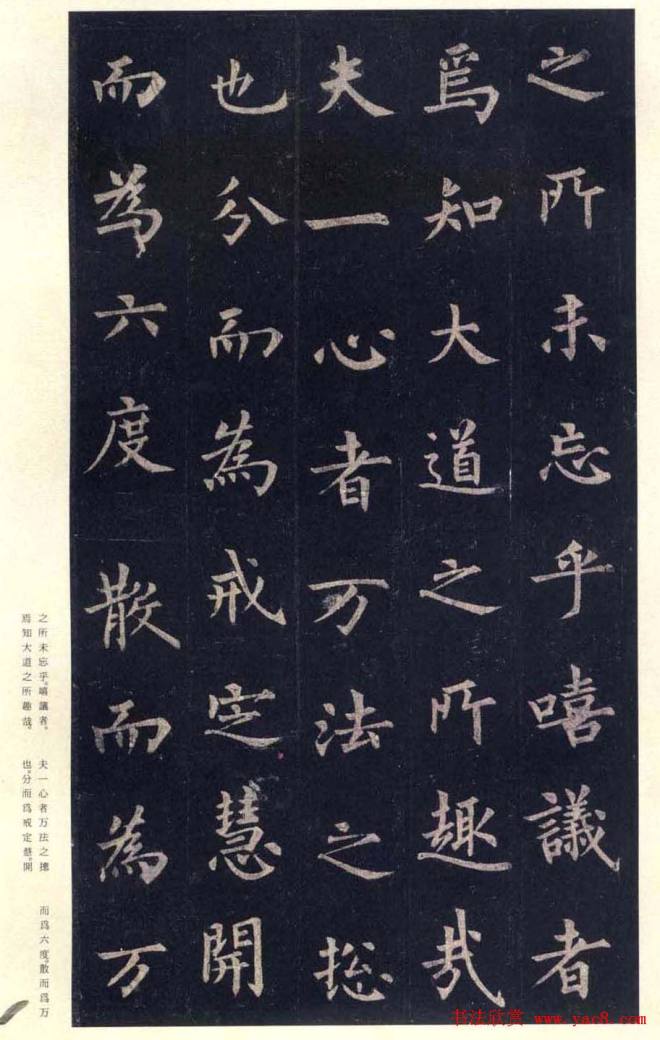 之所未忘乎嘻議者
焉知大道之所趣哉
夫一心者万法之揔
也分而為戒定慧開
而為六度散而為万
之所未忘乎。嘻議者。
焉知大道之所趣哉。
夫一心者万法之揔
也。分而爲戒定慧。開
而爲六度。散而爲万
书法欣赏 www.yac8.com